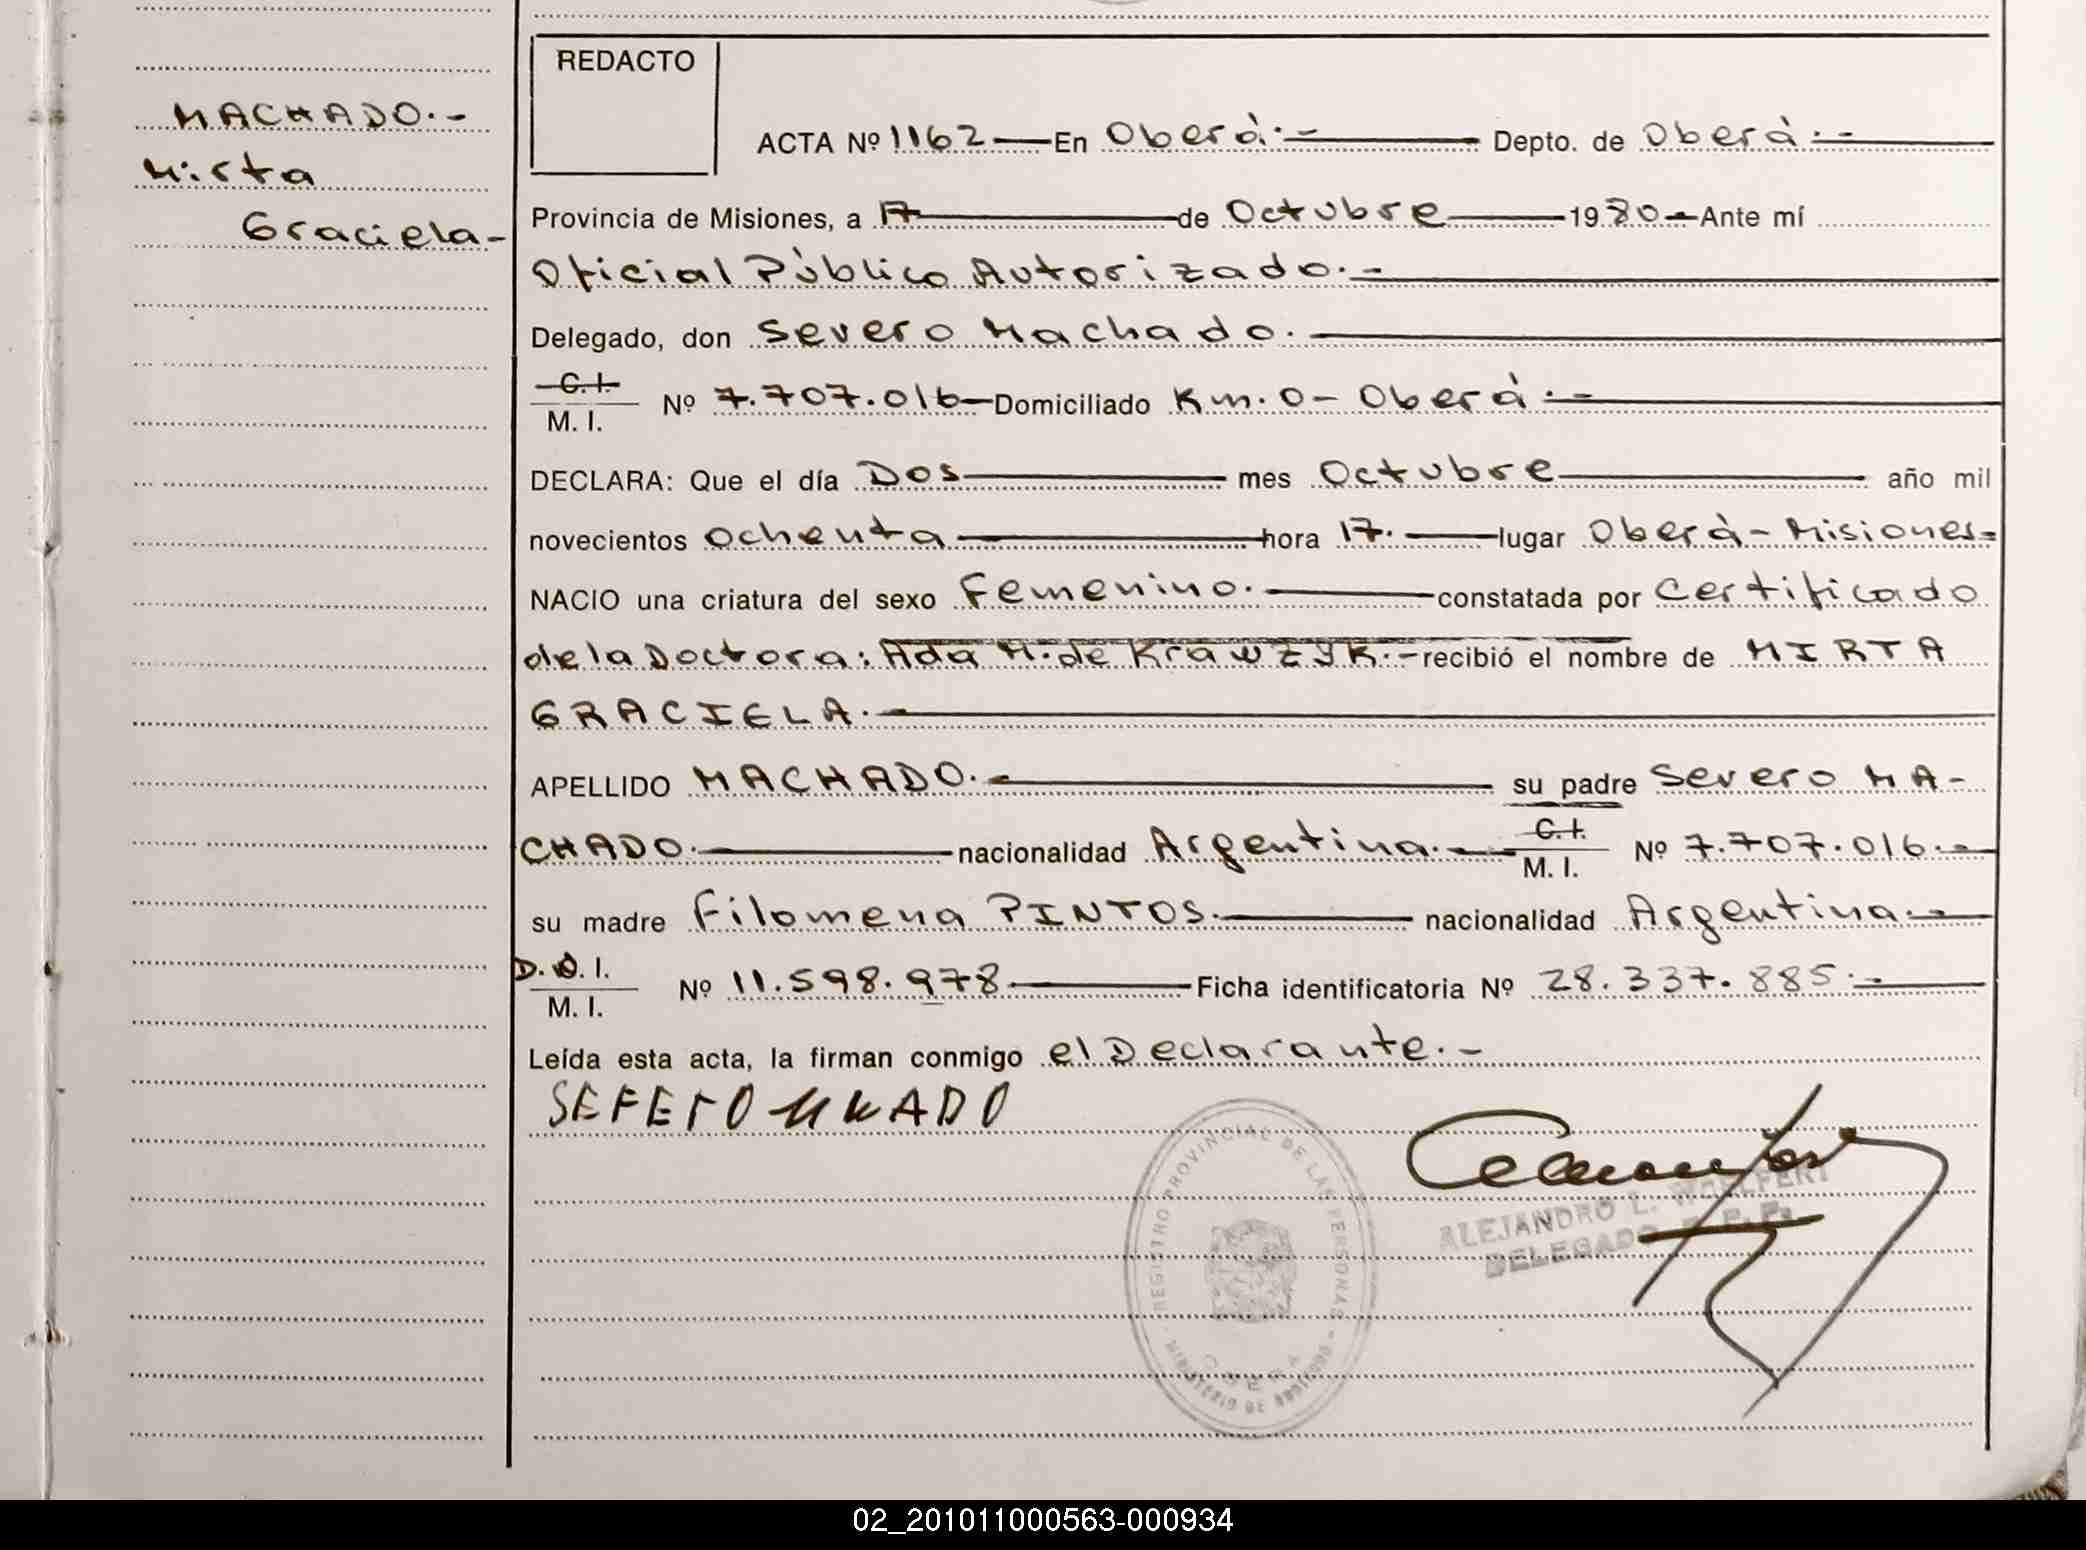 MACHADO.-
Mirta
Graciela-
REDACTO
ACTA Nº 1162 En Oberá.- Depto. de Oberá.-
Provincia de Misiones, a 17 de Octubre 1980 Ante mí
Oficial Público Autorizado.-
Delegado, don Severo Machado.
C. I.
M. I. Nº 7.707.016 Domiciliado Km. 0 - Oberá.-
DECLARA: Que el día Dos mes Octubre año mil
novecientos ochenta hora 17. lugar Oberá - Misiones=
NACIO una criatura del sexo Femenino. constatada por Certificado
de la Doctora: Ada M. de Krawzyk.- recibió el nombre de MIRTA
GRACIELA.-
APELLIDO MACHADO.- su padre Severo MA-
CHADO. nacionalidad Argentina.- C. I.
M. I. Nº 7.707.016.-
su madre Filomena PINTOS. nacionalidad Argentina.-
D. I.
M. I. Nº 11.598.978 Ficha identificatoria Nº 28.337.885.-
Leída esta acta, la firman conmigo el Declarante.-
REGISTRO PROVINCIAL DE LAS PERSONAS
MINISTERIO DE GOBIERNO
OBERA
ALEJANDRO L. WOELFERT
DELEGADO
02_201011000563-000934